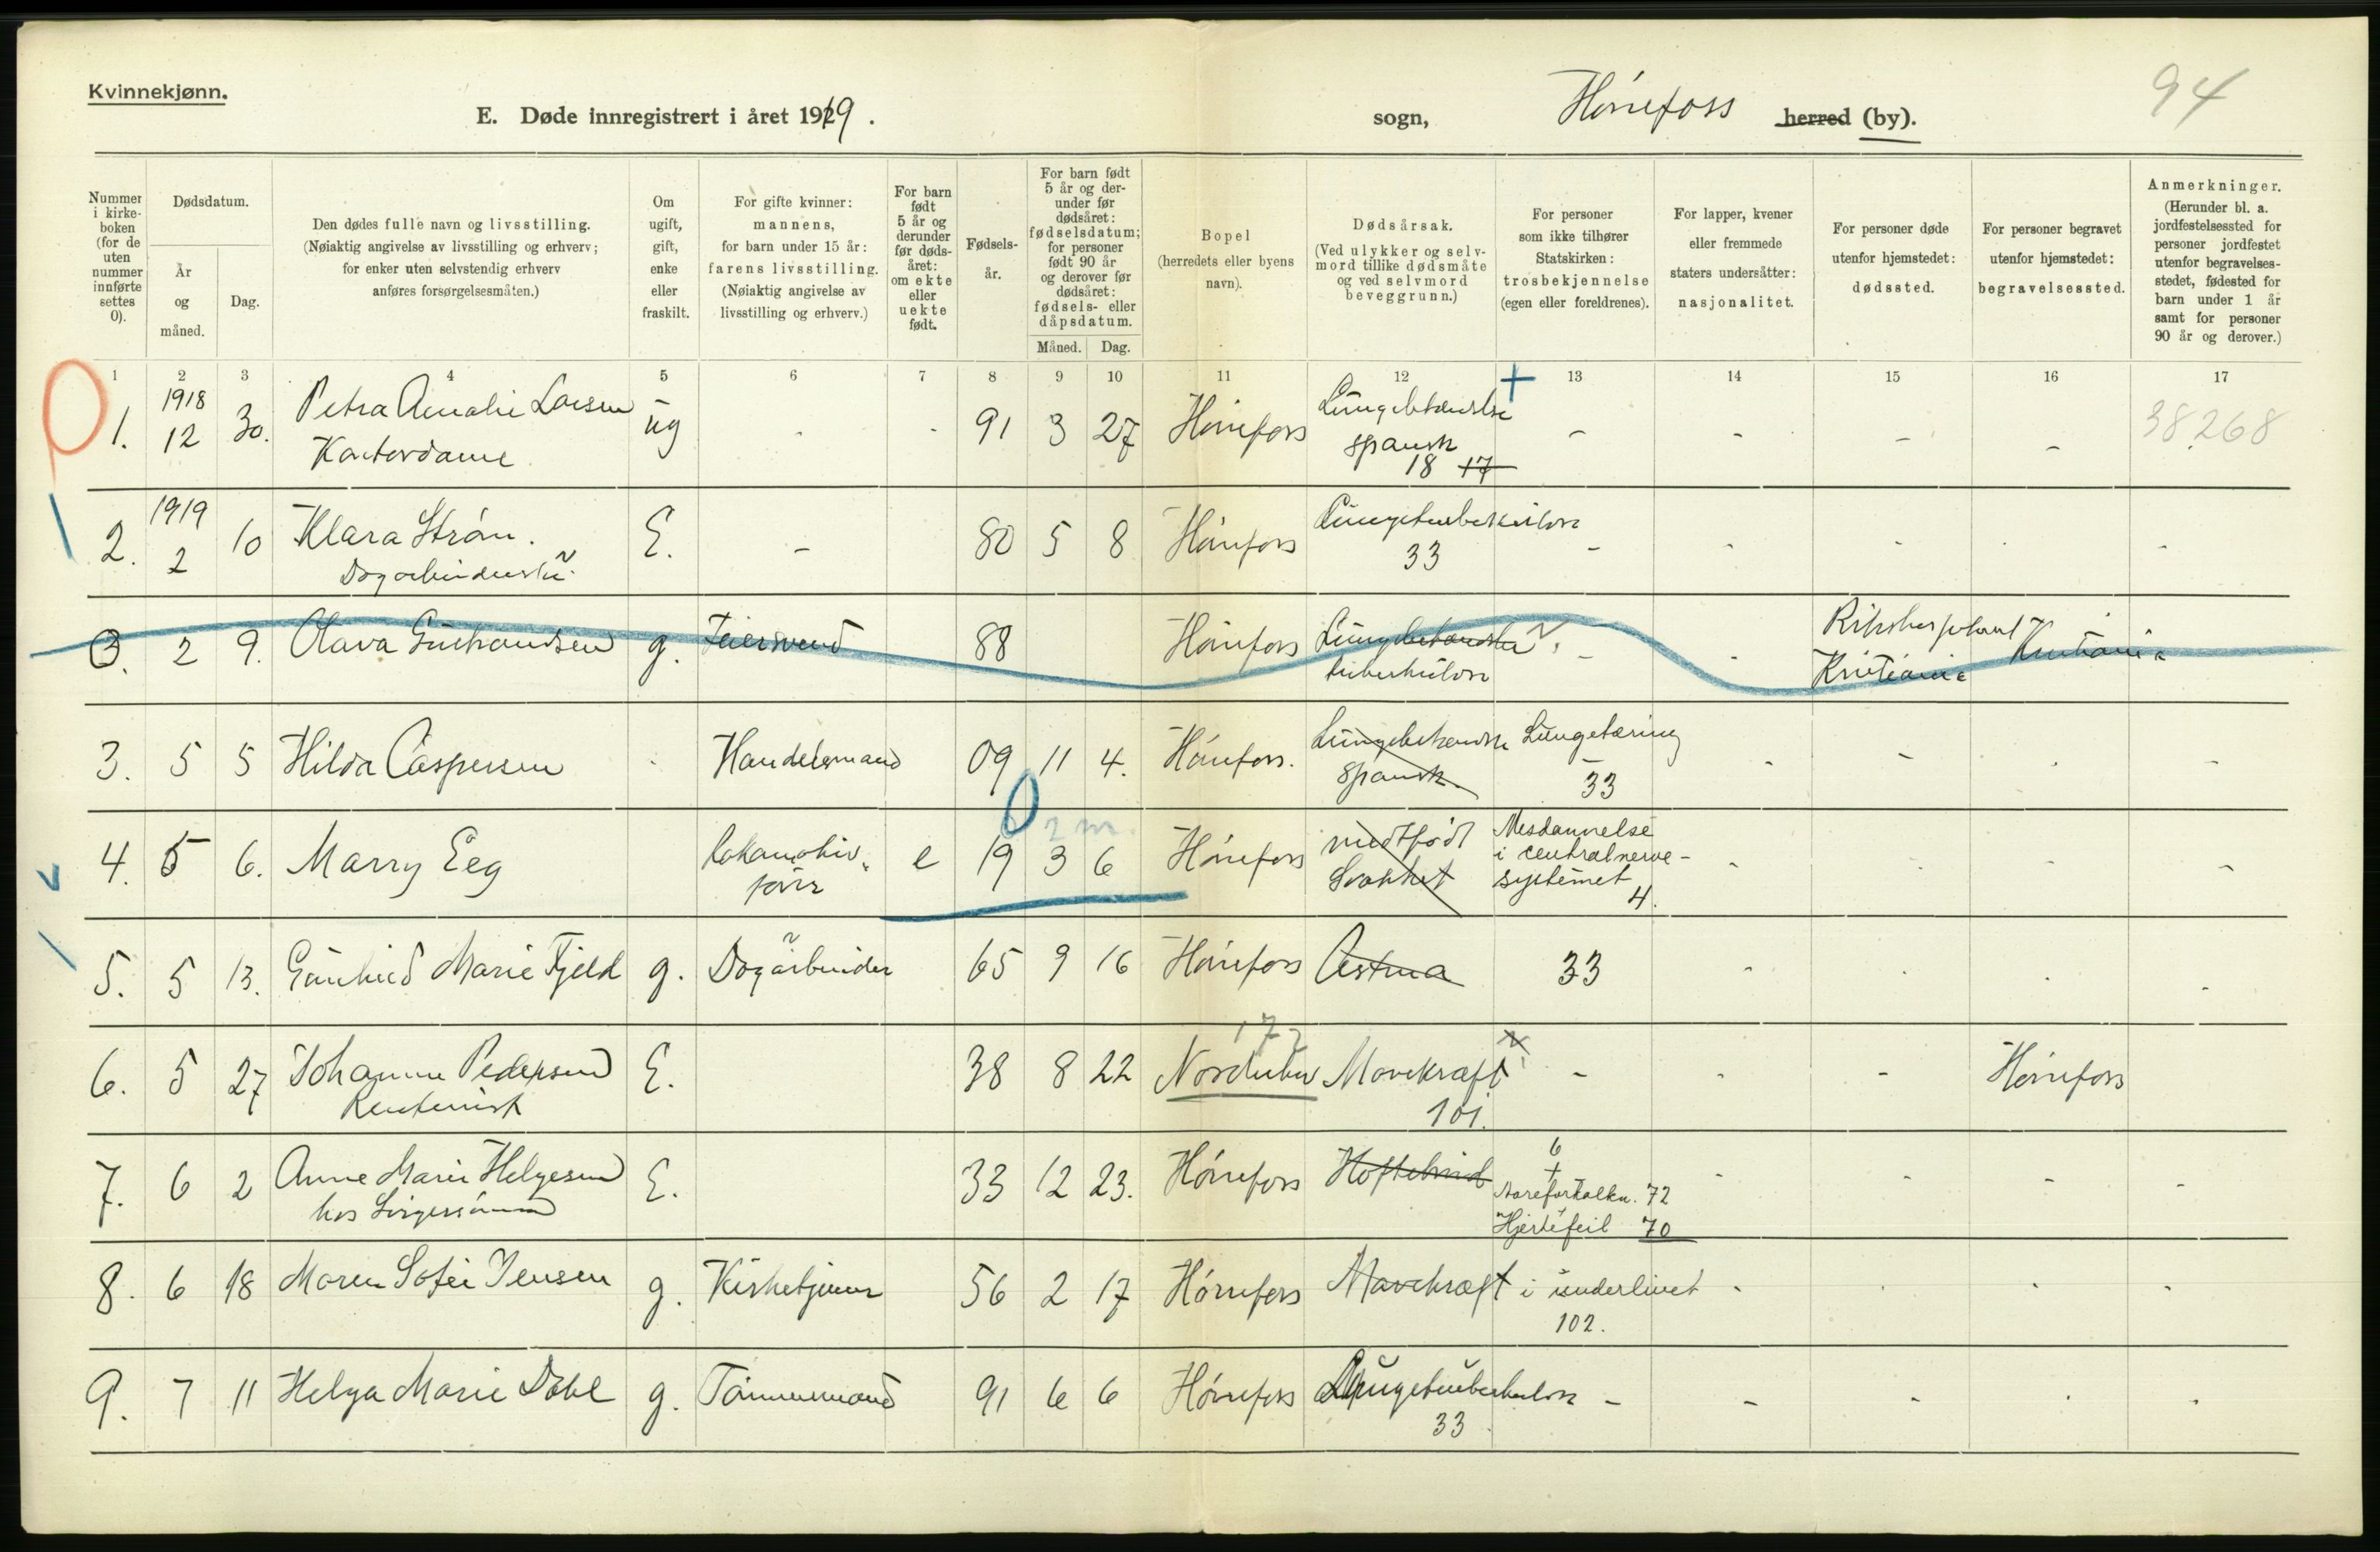 Kvinnekjønn.
E. Døde innregistrert i året 1919.
sogn, Hönefoss herred (by).
94
Nummer i kirkeboken (for de uten nummer innførte settes 0).
Dødsdatum.
År og måned.
Dag.
Den dødes fulle navn og livsstilling.
(Nøiaktig angivelse av livsstilling og erhverv;
for enker uten selvstendig erhverv
anføres forsørgelsesmåten.)
Om ugift, gift, enke eller fraskilt.
For gifte kvinner:
mannens,
for barn under 15 år:
farens livsstilling.
(Nøiaktig angivelse av
livsstilling og erhverv.)
For barn født 5 år og derunder før dødsåret: om ekte eller uekte født.
Fødselsår.
For barn født 5 år og derunder før dødsåret: fødselsdatum; for personer født 90 år og derover før dødsåret: fødsels- eller dåpsdatum.
Måned. Dag.
Bopel
(herredets eller byens
navn).
Dødsårsak.
(Ved ulykker og selvmord tillike dødsmåte og ved selvmord beveggrunn.)
For personer
som ikke tilhører
Statskirken:
trosbekjennelse
(egen eller foreldrenes).
For lapper, kvener
eller fremmede
staters undersåtter:
nasjonalitet.
For personer døde
utenfor hjemstedet:
dødssted.
For personer begravet
utenfor hjemstedet:
begravelsessted.
Anmerkninger.
(Herunder bl. a.
jordfestelsessted for
personer jordfestet
utenfor begravelsesstedet, fødested for
barn under 1 år
samt for personer
90 år og derover.)
1 2 3 4 5 6 7 8 9 10 11 12 13 14 15 16 17
1. 1918 12 30. Petra Amalie Larsen ug - - 91 3 27 Hönefoss Lungebetændelse + - - - - 38268
Kontordame spansk
18 17
2. 1919 2 10 Klara Ström. E. - 80 5 8 Hönefoss Lungetuberkulose - - - - -
Dagarbeiderske 33
3. 2 9. Olava Gulbrandsen g. Feiersvend 88 Hönefoss Lungebetændelse - - Rikshospitalet Kristiania
tuberkulose Kristiania
3. 5 5 Hilda Caspersen - Handelsmand 09 11 4. Hönefoss. Lungebetændelse Lungetæring - - - -
spansk 33
4. 5 6. Marry Eeg Lokomotiv- e 19 3 6 Hönefoss medfödt Misdannelse - - - -
2 m. förer Svakhet i centralnerve-
systemet
4.
5. 5 13. Gunhild Marie Fjeld g. Dagarbeider 65 9 16 Hönefoss Astma 33 - - - -
6. 5 27 Johanne Pedersen E. 38 8 22 Norderhov Mavekræft - - - Hönefoss
Rentenist 101.
7. 6 2 Anne Marie Helgesen E. 33 12 23. Hönefoss Hoftebrud 6 + - - - -
hos Svigersönn Aareforkalkn. 72
Hjertefeil 70
8. 6 18 Maren Sofie Jensen g. Kirketjener 56 2 17 Hönefoss Mavekræft i underlivet - - - -
102.
9. 7 11 Helga Marie Dahl g. Tömmermand 91 6 6 Hönefoss Lungetuberkulose - - - - -
33